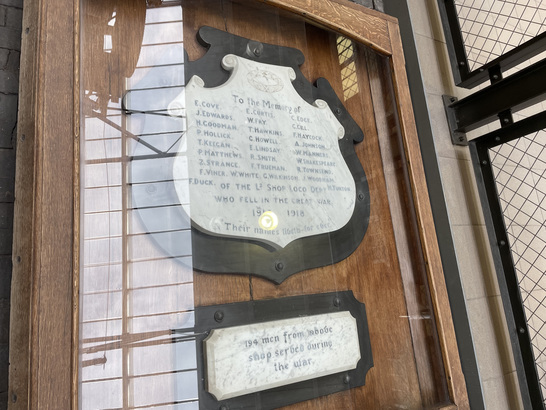 To the Memory of
E. COVE. E. CURTIS. C. EDEE.
J. EDWARDS. W. FRY. C. GILL.
H. GOODMAN. T. HAWKINS. F. HAYCOCK.
P. HOLLICK. G. HOWELL. A. JOHNSON.
T. KEEGAN. E. LINDSAY. W. MANNERS.
P. MATTHEWS. K. SMITH. W. SHAKESPEARE.
J. STRANGE. F. TRUEMAN. R. TOWNSEND.
F. VINER. W. WHITE. G. WILKINSON. J. WOODMAN.
F. DUCK. OF THE Lt SHOP LOCO DEPt
WHO FELL IN THE GREAT WAR
1914 1918
Their names liveth for ever
194 men from above
shop served during
the war.